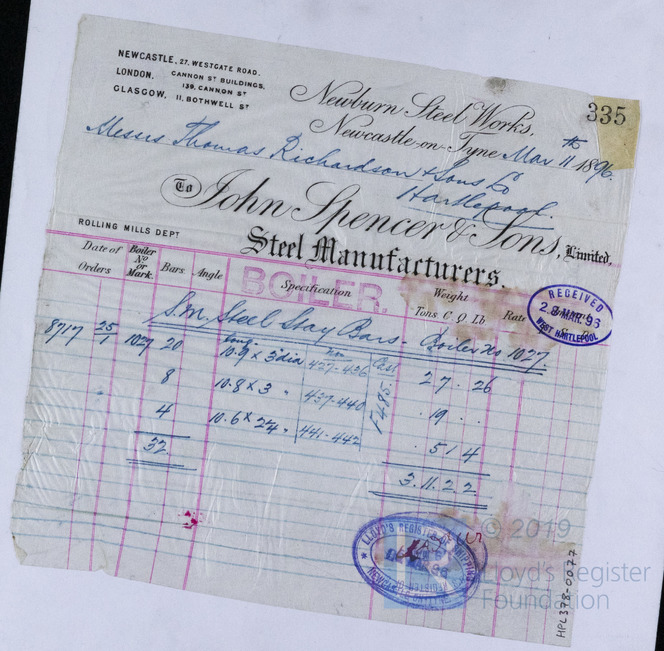 NEWCASTLE, 27. WESTGATE ROAD.
LONDON. CANNON ST BUILDINGS,
139, CANNON ST
GLASGOW, 11. BOTHWELL ST
335
Newburn Steel Works,
Newcastle-on-Tyne Mar 11th 1896.
Messrs Thomas Richardson & Sons Ld
Hartlepool.
To John Spencer & Sons, Limited,
ROLLING MILLS DEPT
Steel Manufacturers.
BOILER.
Date of Orders Boiler No or Mark Bars Angle Specification Weight Tons C Q Lb Rate
RECEIVED
WEST HARTLEPOOL
S.M. Steel Stay Bars - Boiler No 1027.
8717 25/1 1027 20 10.9 x 3 dia 427-436 Cast 27. 26
8 10.8 x 3 " 437-440 F485. 19. .
4 10.6 x 2¾ " 441-442 5 1 4
32 3.11.2.2
LLOYD'S REGISTER OF SHIPPING
© 2019
Lloyd's Register
Foundation
HPL378-0077